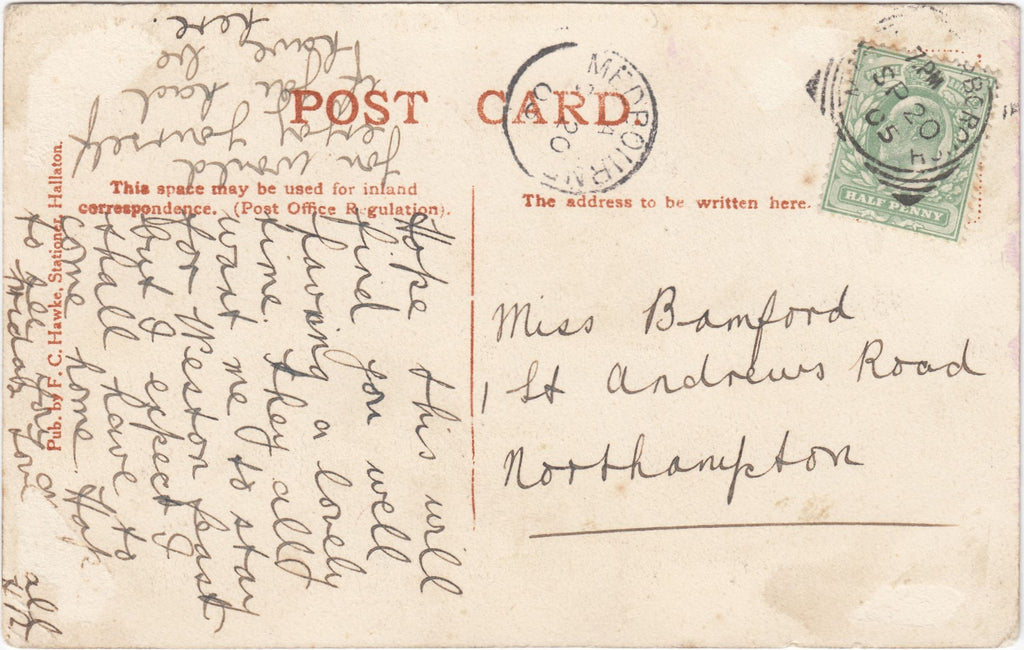 POST CARD.
This space may be used for inland
correspondence. (Post Office Regulation).
The address to be written here.
Pub. by F. C. Hawke, Stationer, Hallaton.
MEDBOURNE
A
SP 20
05
BOROUGH
7 PM
SP 20
05
HALF PENNY
Miss Bamford
1 St Andrews Road
Northampton
Hope this will
find you well
having a lovely
time. they all
want me to stay
for Weston feast
but I expect I
shall have to
come home
to
love
you would
enjoy yourself
if you had
been
here.